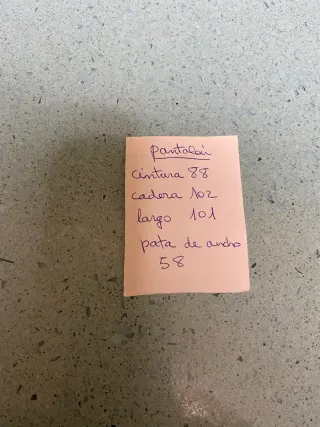 pantalón
cintura 88
cadera 102
largo 101
pata de ancho
58